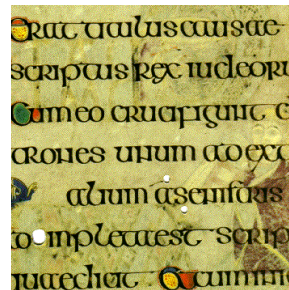 Erat titulus causae
scriptus rex iudeoru
Cum eo crucifigunt
trones unum a dex
alium a senistris
inpleta est scrip